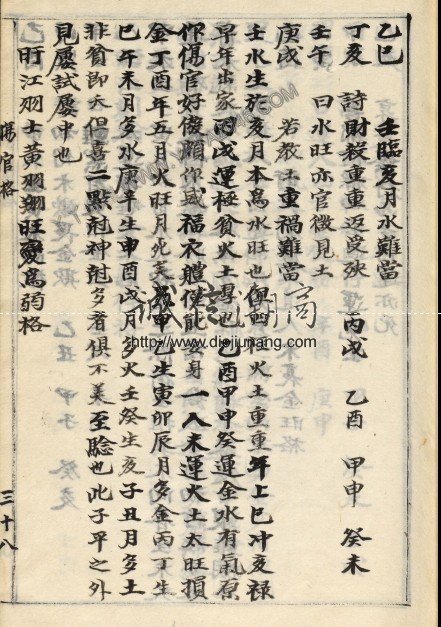 乙巳 壬臨亥月水難當
丁亥 詩財殺重重迈受殃 丙戌 乙酉 甲申 癸未
壬午 曰水旺亦官微見土
庚戌 若教土重禍難當
壬水生於亥月本為水旺也 火土重重年上巳冲亥禄
早年出家丙戌運極貧火土厚也乙酉甲申癸運金水有氣原
作傷官好傻頗作威福衣 僅能安身一入未運火土太旺損
金丁酉年五月火旺月死矣 甲乙生寅卯辰月多金丙丁生
巳午未月多水庚辛生申酉戌月多火壬癸生亥子丑月多土
非貧即夭偈喜一點尅神尅多者俱不美至驗也此子平之外
見屢試屢中也
盱江羽士黄羽翔旺變為弱格
傷官格
三十八
誠 湖商
http://www.diejiuliang.com